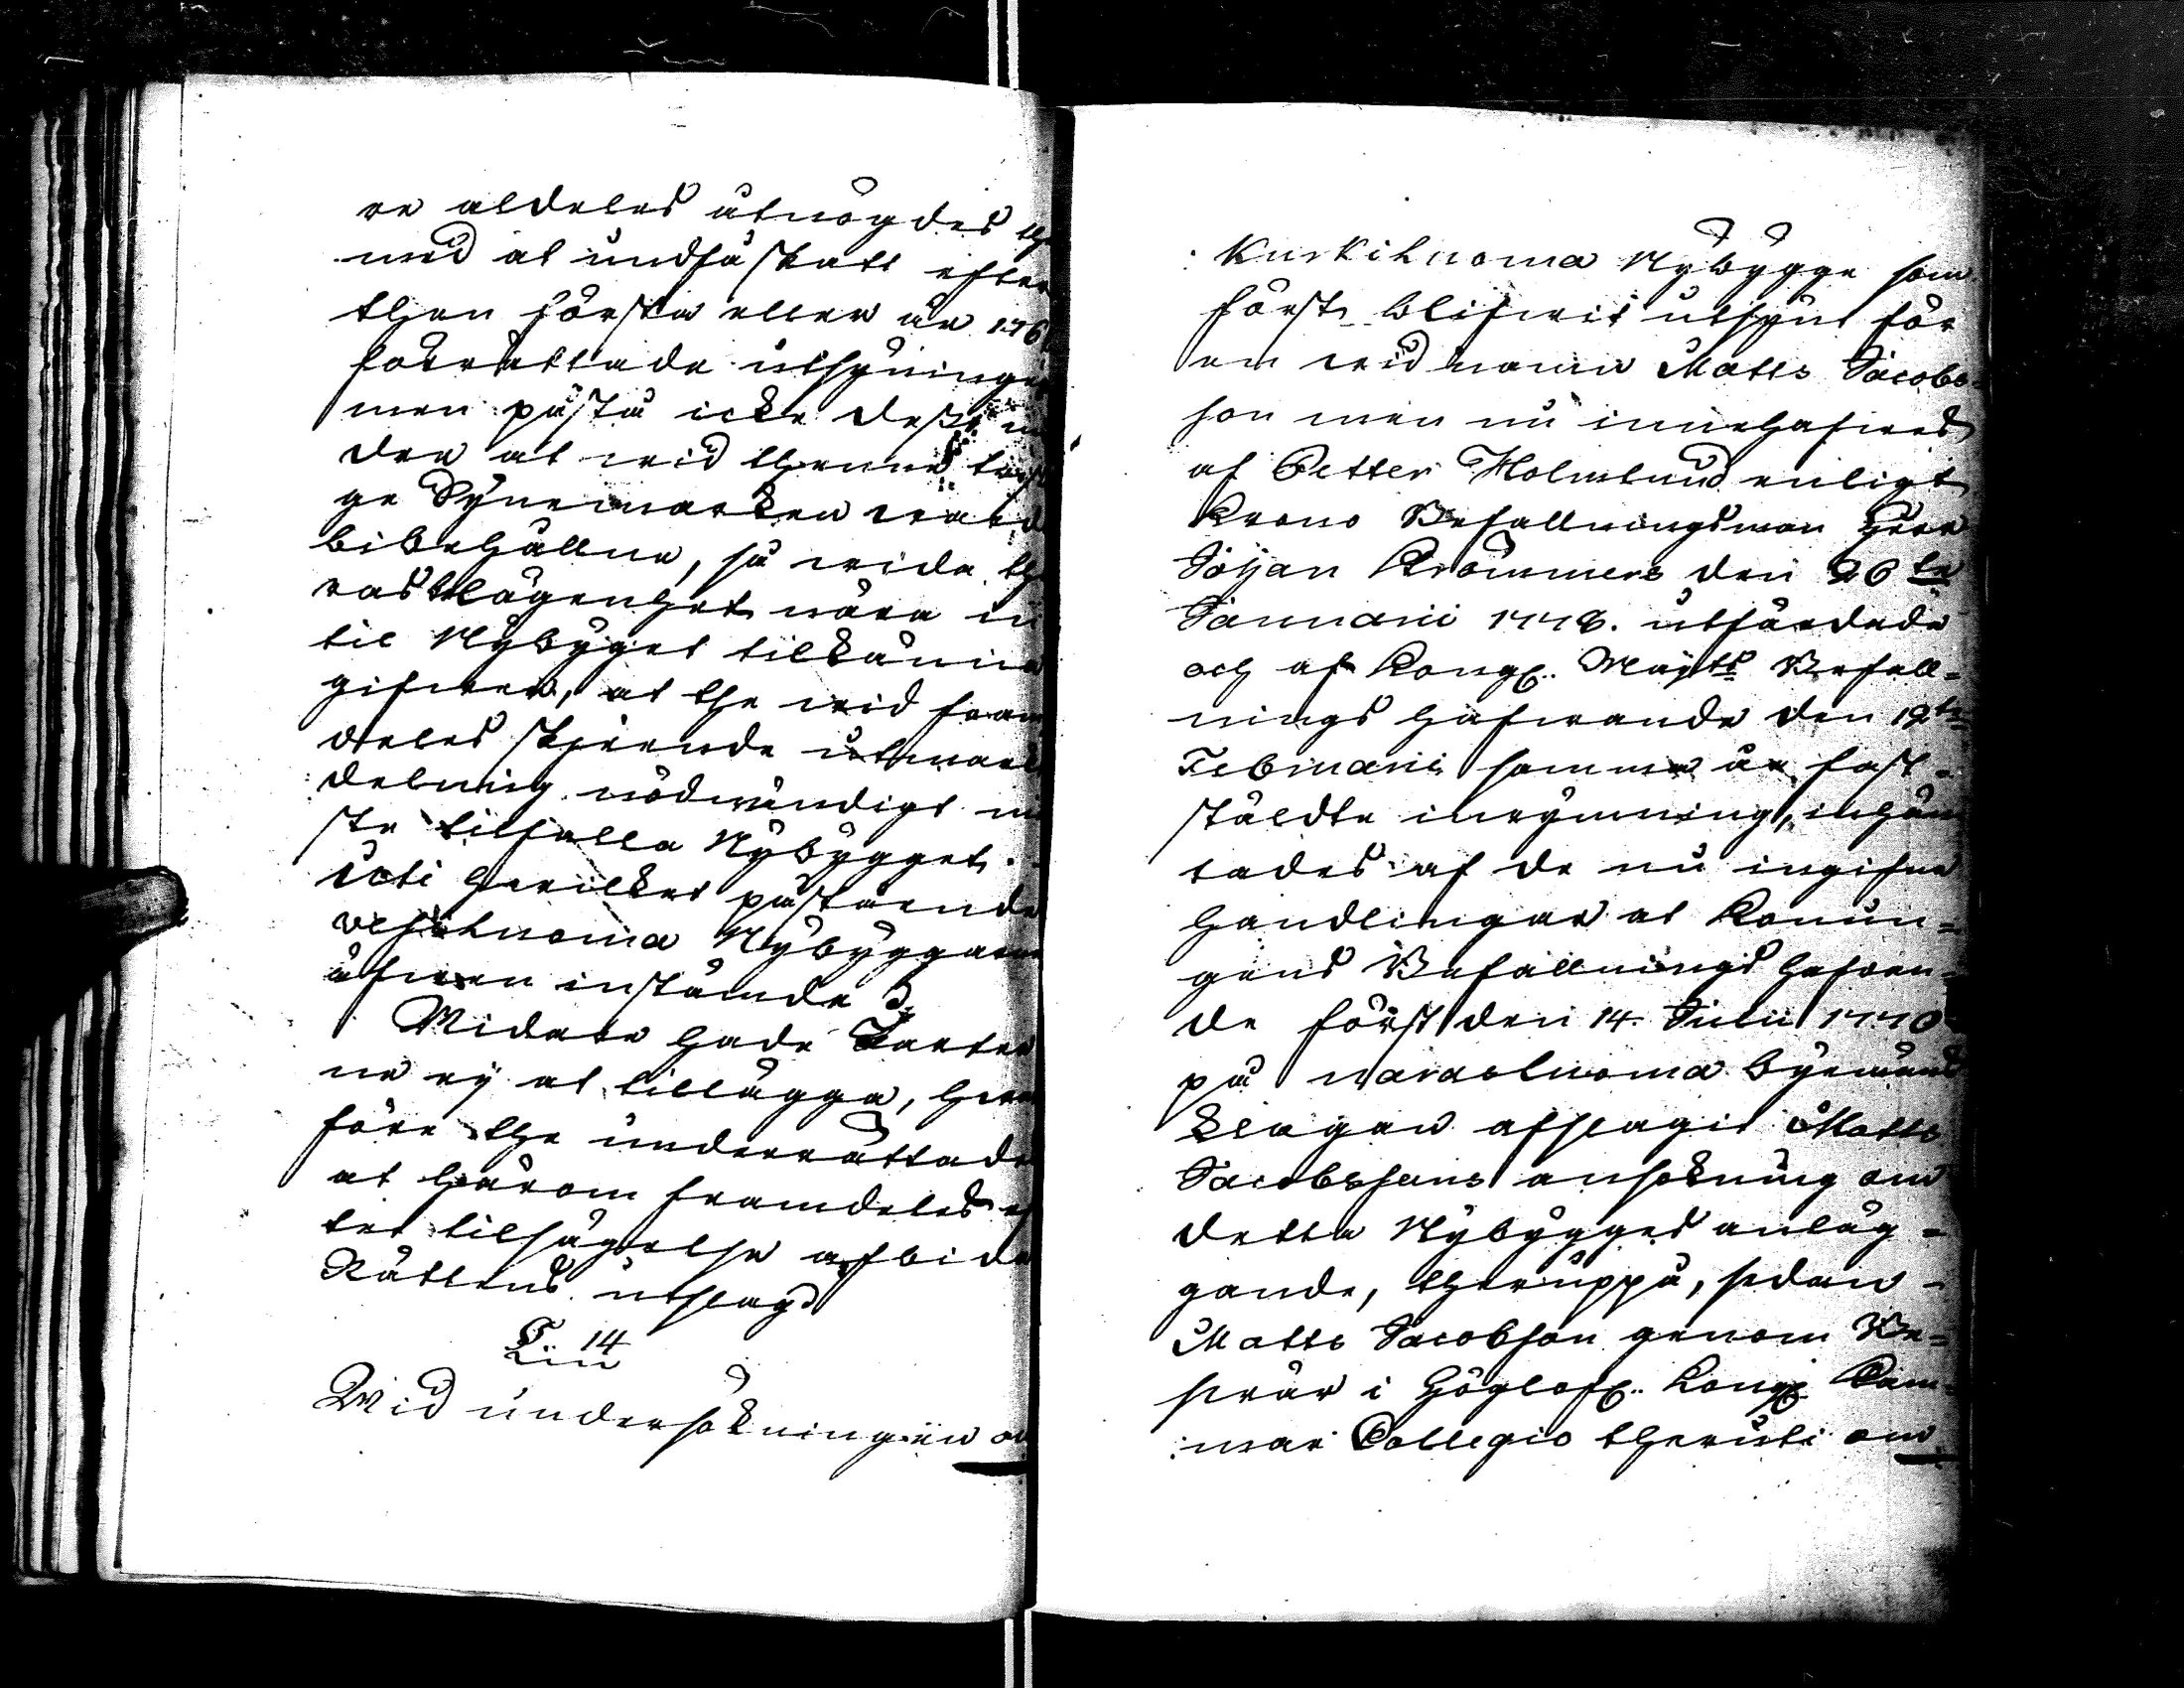 re aldeles åtnögdes th
med at undfå skatt efter
then första eller år 176
förrättade utsyningen
men påstå icke desto min
der at wid thenne sist
ge Synemarken ward
bibehållne, så wida th
ras lägenhet nära in
til Nybyget tilkänna
gifwen, at the wid fram
deles skjeende utmark
delning nödwändigt må
ste tilfalla Nybygget.
Uti hwilket påstående
Nybyggarne
äfwen instämde
Widare hade Parter
ne ej at tillägga, hwar
före the underrättade
at härom framdeles ef
ter tilsägelse afbida
Rättens utslag
§ 14
Wid undersökningen om
Kurkikuoma Nybygge som
först blifwit utsynt för
en wid namn Matts Jacobs-
son men nu innehafwes
af Petter Holmlund enligt
Krono Befallningsman Herr
Johan Krömmers den 26te
Januarii 1778. utfärdade
och af Kongl. Maijts Befall=
nings hafwande den 19te
Februarii samma år fast-
stäldte inrymning, inhäm
tades af de nu ingifne
handlingar at Konun=
gens Befallnings hafwan=
de först den 14. Julii 1770
på byemäns
klagan afslagit Matts
Jacobssons ansökning om
detta Nybygges anläg=
gande, theruppå, sedan
Matts Jacobson genom Be=
swär i Höglofl. Kongl. Cam=
mar Collegio theruti om